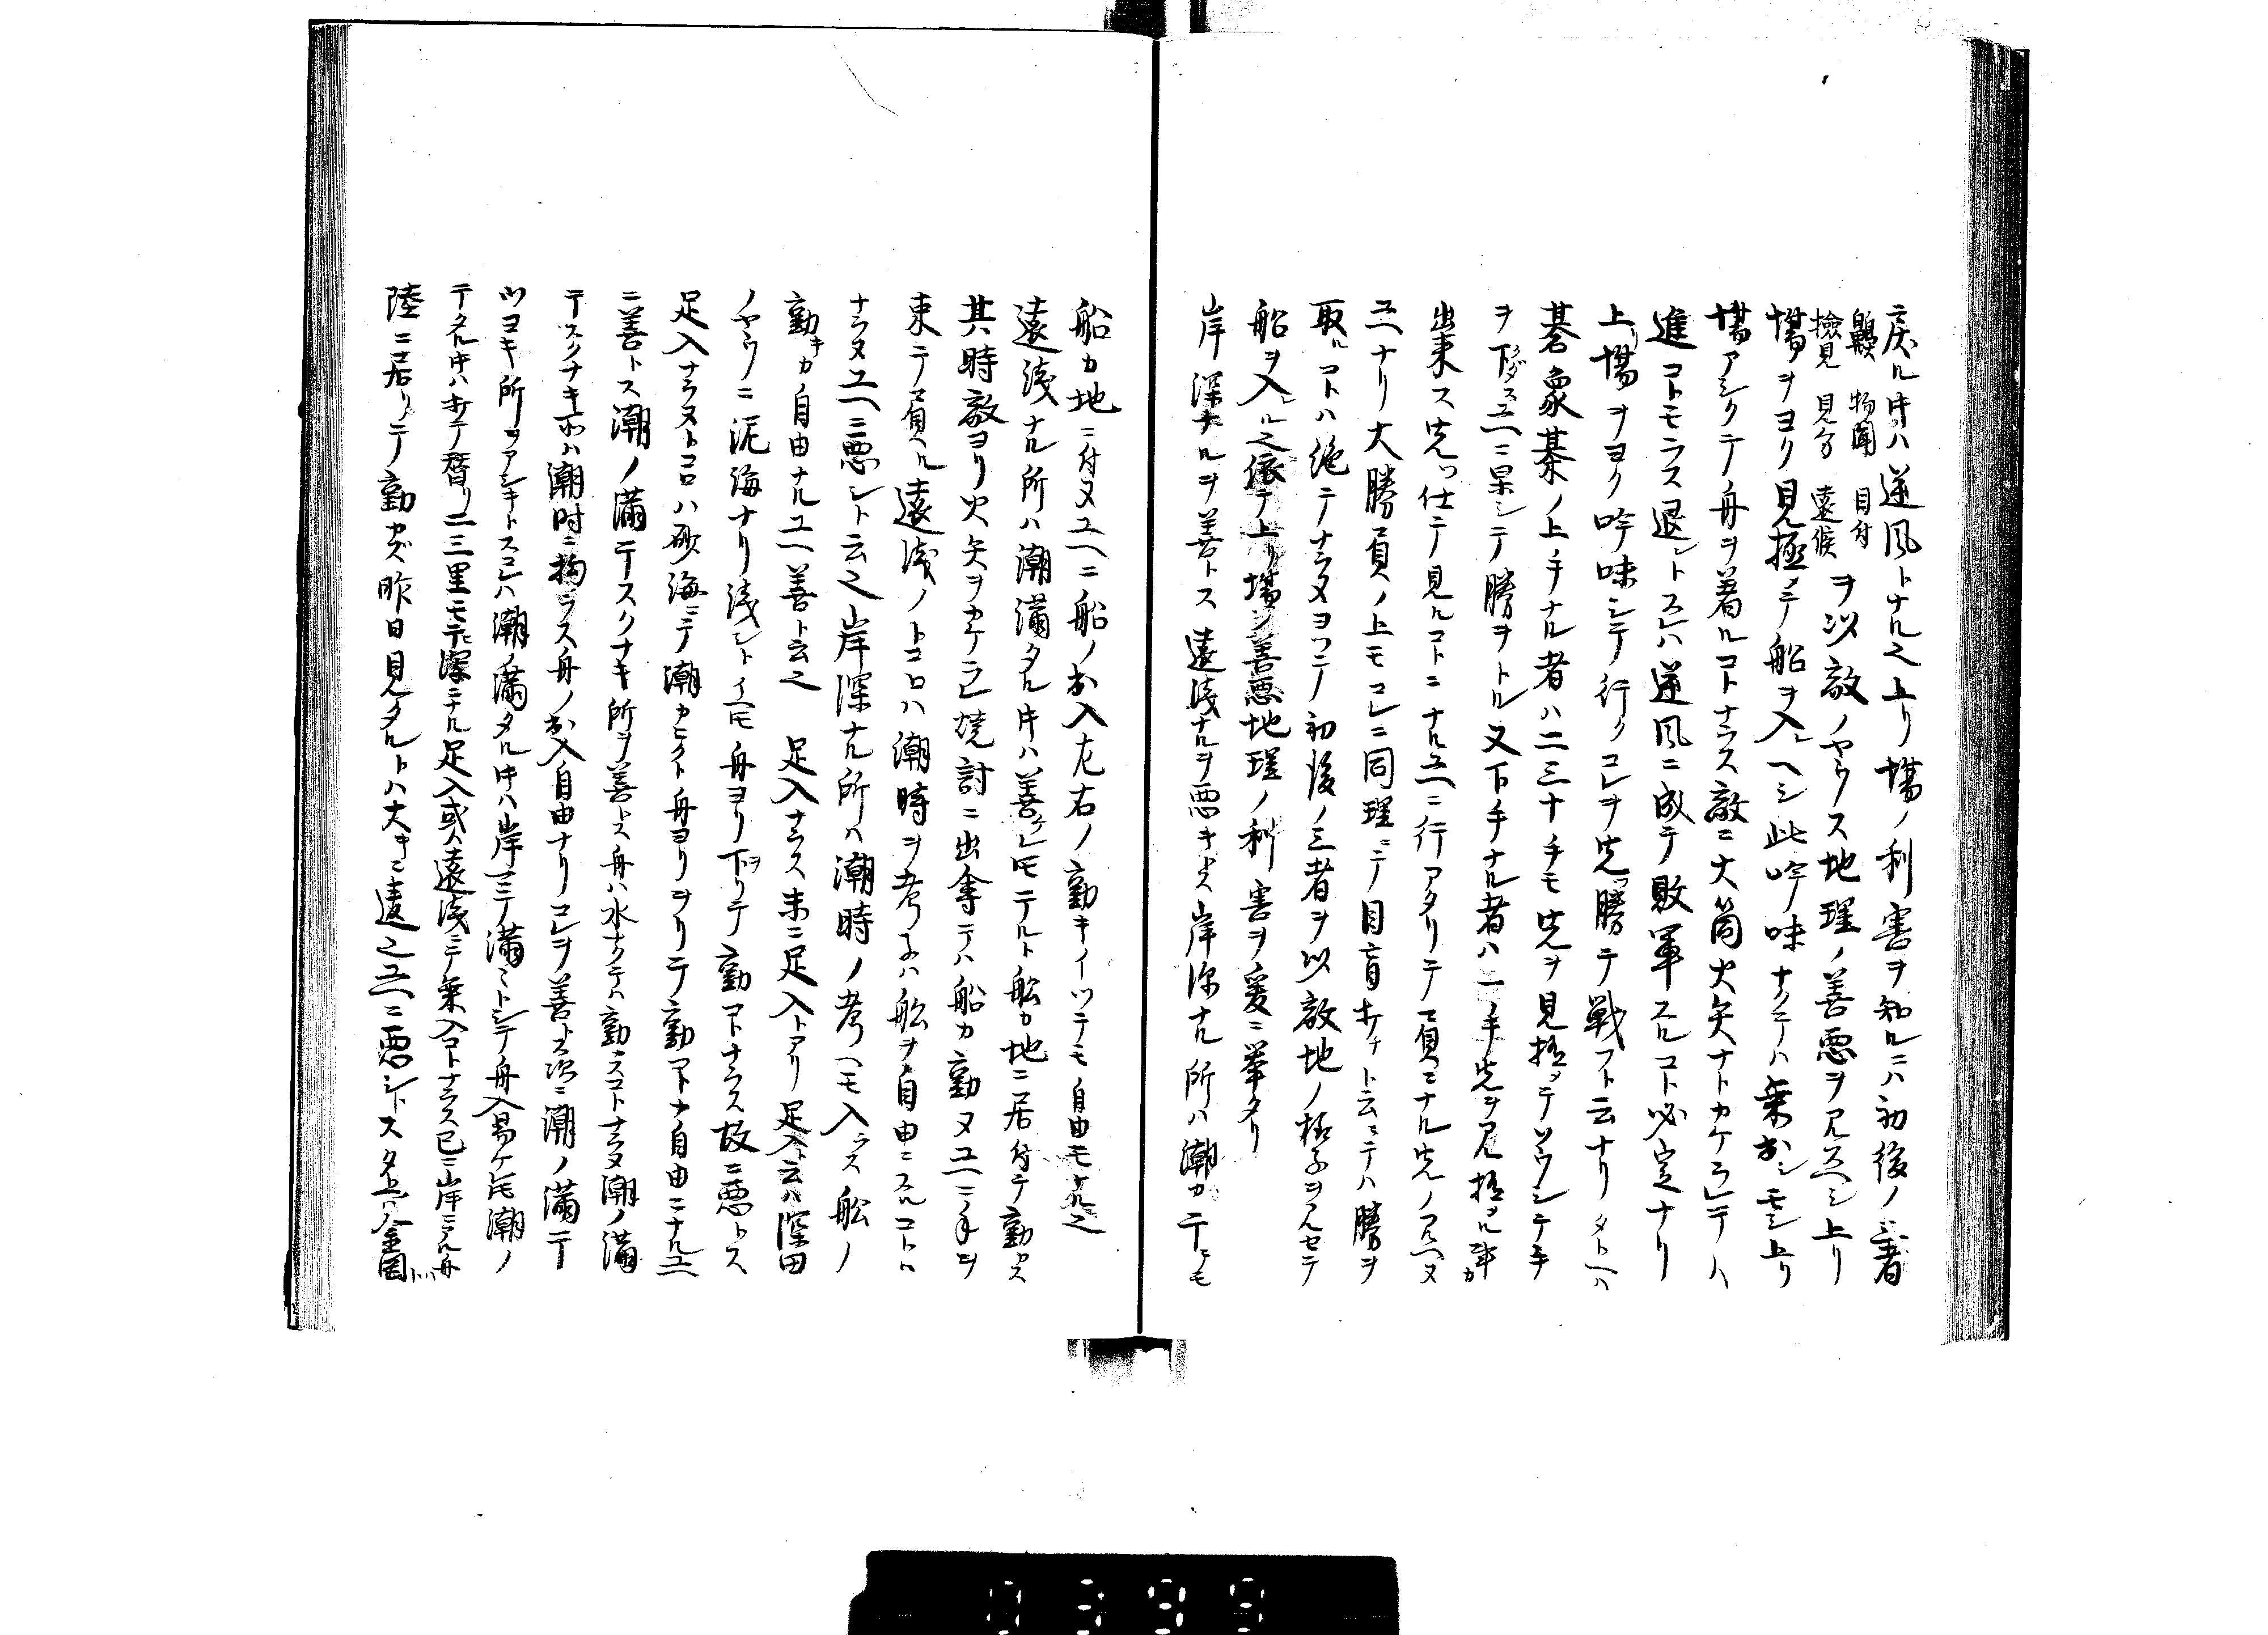 戻ル時ハ逆風トナル之上リ場ノ利害ヲ知ルニハ初後ノ三者
物聞 目付
檢見 見分 遠候 ヲ以敵ノヤウス地理ノ善悪ヲ見スヘシ上リ
場ヲヨク見極メテ船ヲ入ルヘシ此吟味ナクテハ乗出シモシ上リ
場アシクテ舟ヲ着ルコトナラス敵ニ大筒火矢ナトカケラレテハ
進コトモラス退ントスレハ逆風ニ成テ敗軍スルコト必定ナリ
上リ場ヲヨク吟味シテ行クコレヲ先ツ勝テ戦フト云ナリタトヘハ
碁象棊ノ上手ナル者ハ二三十手モ先ヲ見極メテソウシテ手
ヲ下タスユヘニ果シテ勝ヲトル又下手ナル者ハ一手先ヲ見極ル事カ
出来ス先ツ仕テ見ルコトニナルユヘニ行アタリテ負ニナル先ノ見ヘヌ
ユヘナリ大勝負ノ上モコレニ同理ニテ目盲打チト云ニテハ勝ヲ
取ルコトハ絶テナラヌヨツテノ初後ノ三者ヲ以敵地ノ様子ヲ見セテ
船ヲ入ルル之依テ上リ場ノ善悪地理ノ利害ヲ爰ニ挙タリ
岸深ナルヲ善トス遠浅ナルヲ悪キトス岸深ナル所ハ潮カ干テモ
船カ地ニ付ヌユヘニ船ノ出入左右ノ動キイツテモ自由モナル之
遠浅ナル所ハ潮満タル時ハ善ケレ𪜈干ルト舩カ地ニ居付テ動カス
其時敵ヨリ火矢ヲカケラレ焼討ニ出會テハ船カ動ヌユヘニ手ヲ
束テ負ヘル遠浅ノトコロハ潮時ヲ考子ハ舩ヲ自由ニスルコトハ
ナラヌユヘニ悪シト云之岸深ナル所ハ潮時ノ考ヘモ入ラス舩ノ
動キカ自由ナルユヘ善ト云之 足入ナラス末ニ足入トアリ足入ト云ハ深田
ノヤウニ泥海ナリ浅シトイヘ𪜈舟ヨリ下リテ動コトナラス故ニ悪トス
足入ナラヌトコロハ砂海ニテ潮カヒクト舟ヨリヲリテ動コトナ自由ニナルユヘ
ニ善トス潮ノ満干スクナキ所ヲ善トス舟ハ水ナクテハ動スコトナラヌ潮ノ満
干スクナキ所ハ潮時ニ拘ラス舟ノ出入自由ナリコレヲ善トス次ニ潮ノ満干
ツヨキ所ヲアシキトスコレハ潮ノ満タル時ハ岸ニテ満ミトシテ舟入易ケレ𪜈潮ノ
干タル時ハ却テ替リ二三里モ干深ニナル足入或ハ遠浅ニテ乗入コトナラス已ニ岸ニアル舟
陸ニ居リテ動カズ昨日見タルトハ大キニ違之ユヘニ悪シトスタトヘハ金図